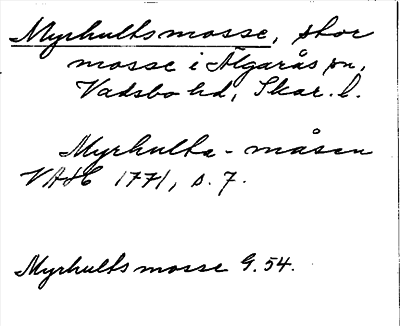 Myrhultsmosse, stor
mosse i Älgarås sn,
Vadsbo hd, Skar. l.
Myrhults-måsen
VAH 1771, s. 7.
Myrhultsmosse G. 54.